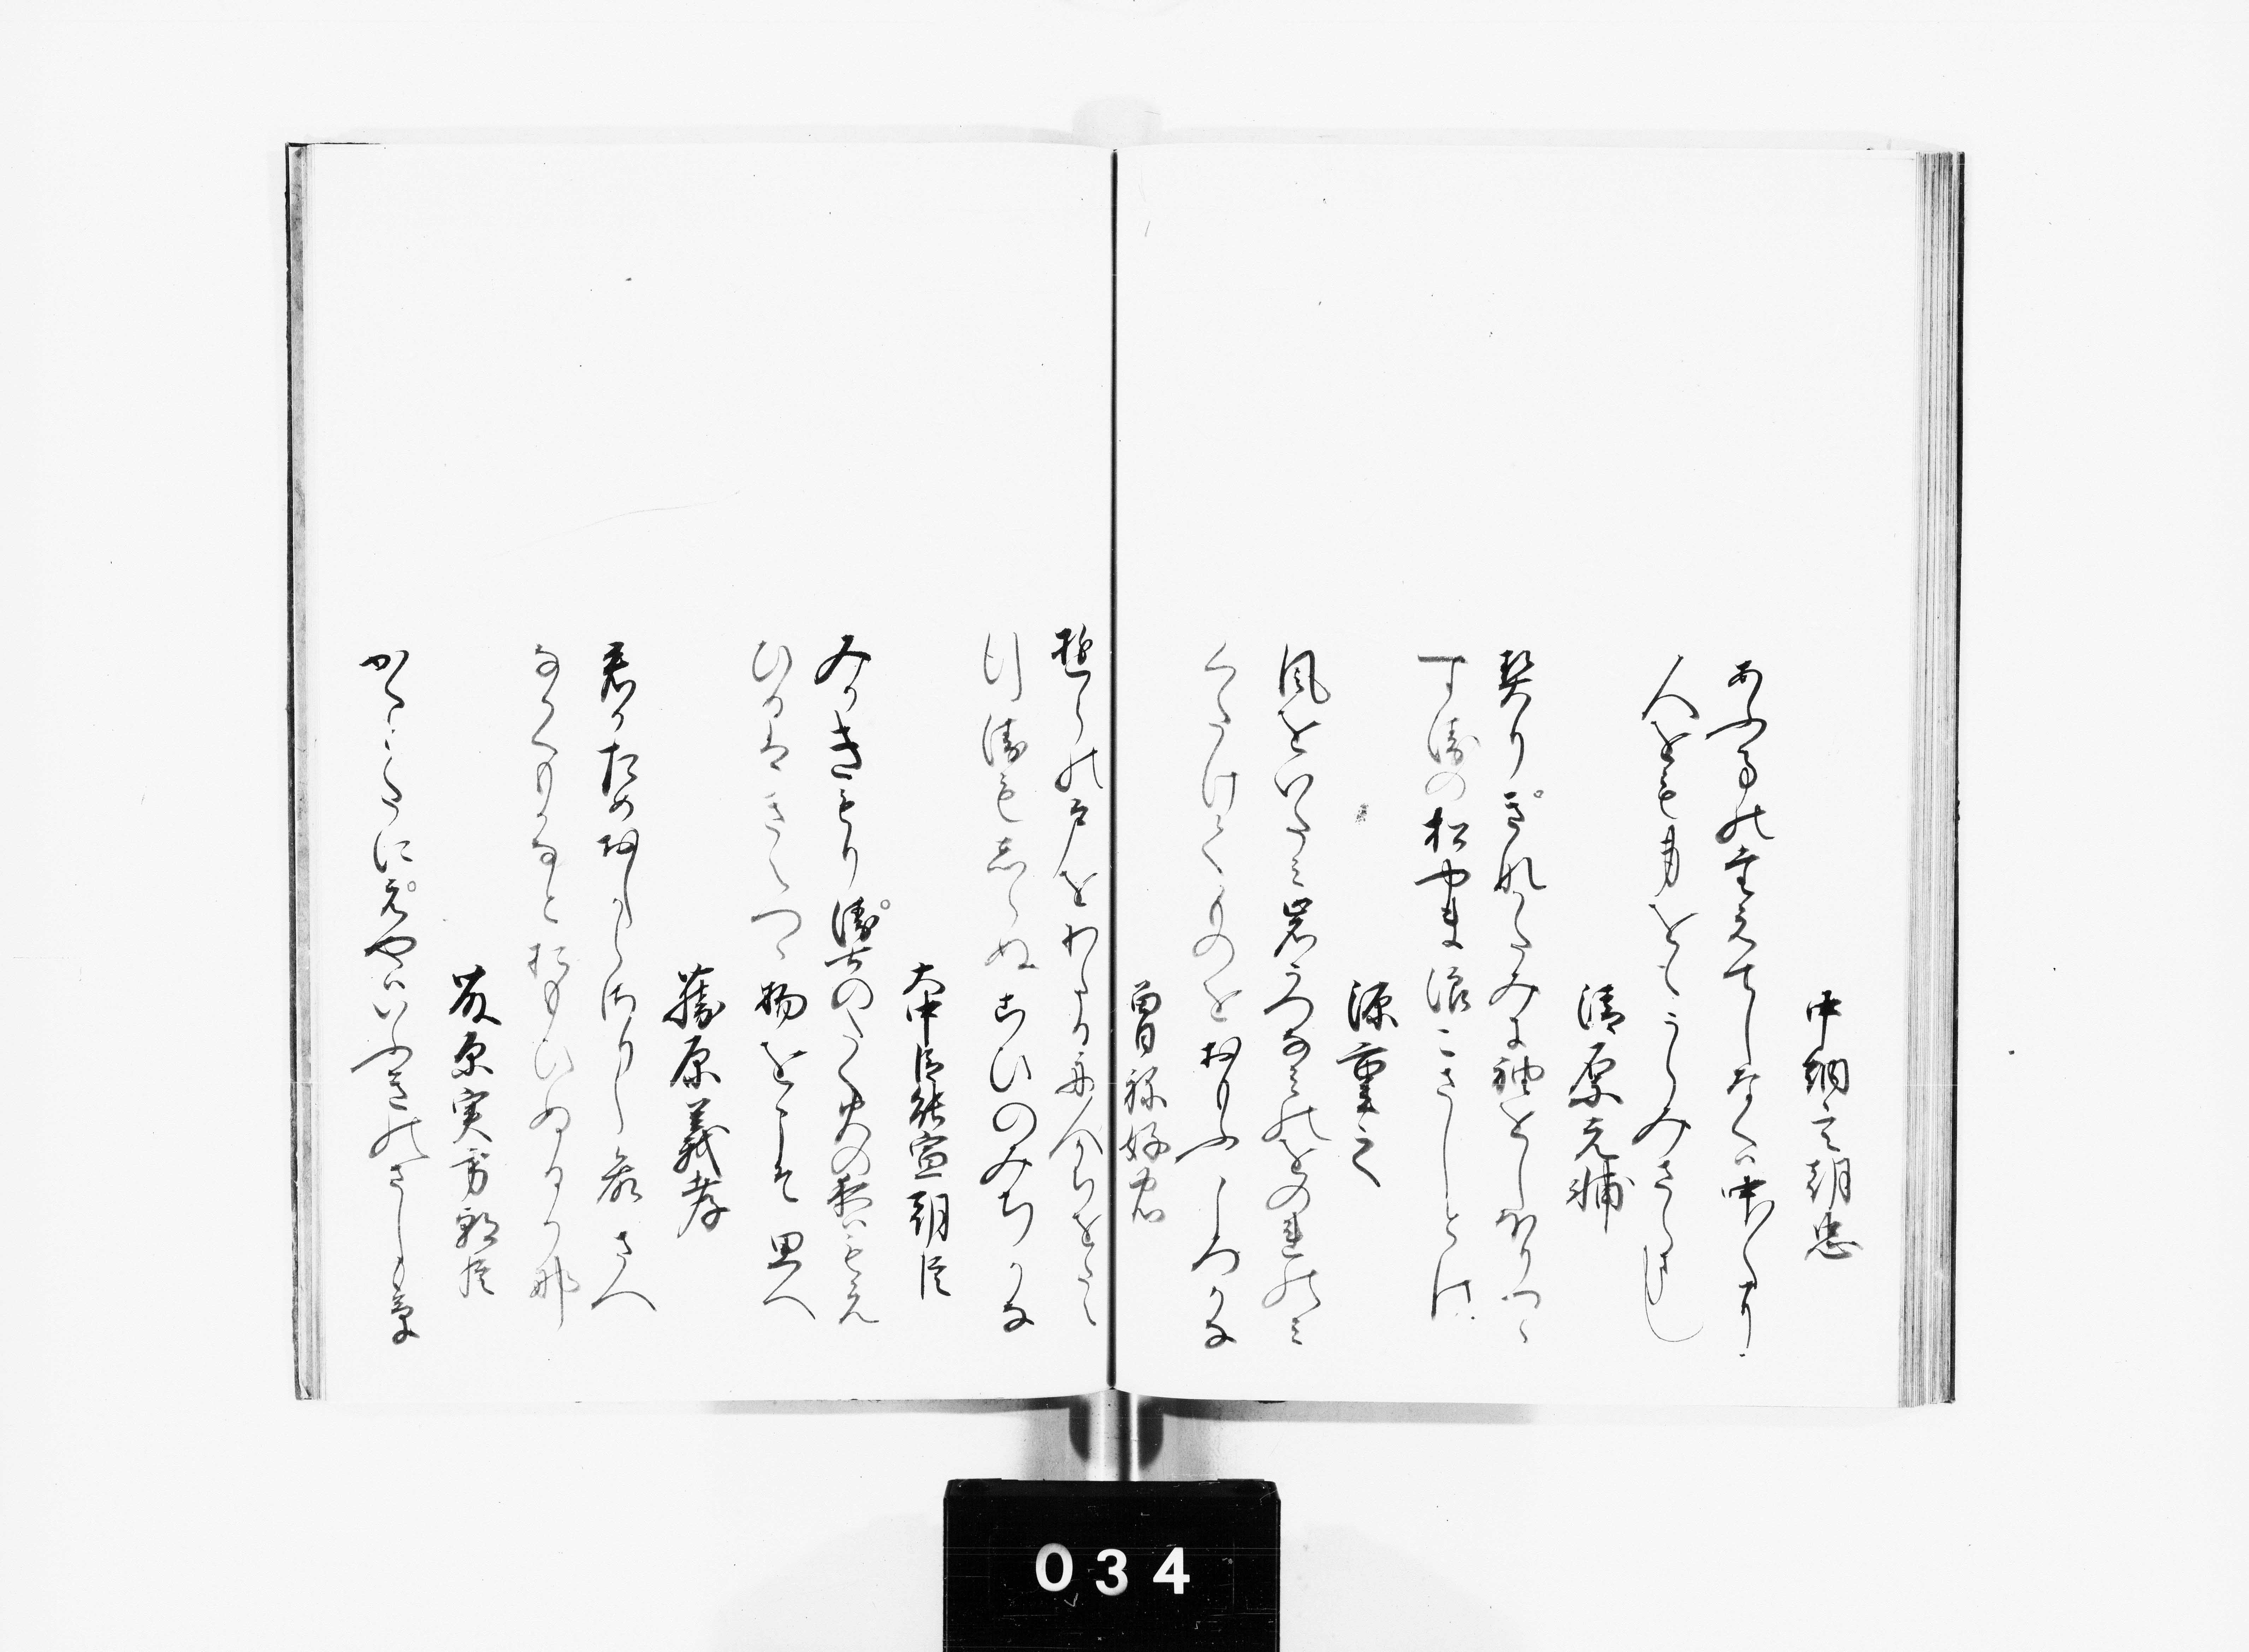 中納言朝忠
あふ事の堂えてしなくハ中〳〵に
人をも身をもうらみさらまし
清原元輔
契りきなかたみに袖をしほりつゝ
す衛の松やま浪こさしとは
源重之
風をいたミ岩うつなミのをのれのミ
くたけてものをおもふころかな
曽祢好忠
由らの戸をわたる舟人かちをたえ
行衛もしらぬこひのみちかな
大中臣能宣朝臣
みかきもり衛士のたく火の夜ハもえ
ひるはきえつゝ物をこそ思へ
藤原義孝
君かためおしからさりし命さへ
なかくもかなとおもひぬるか那
藤原実方朝臣
かくとたにえやハいふきのさしも草
034